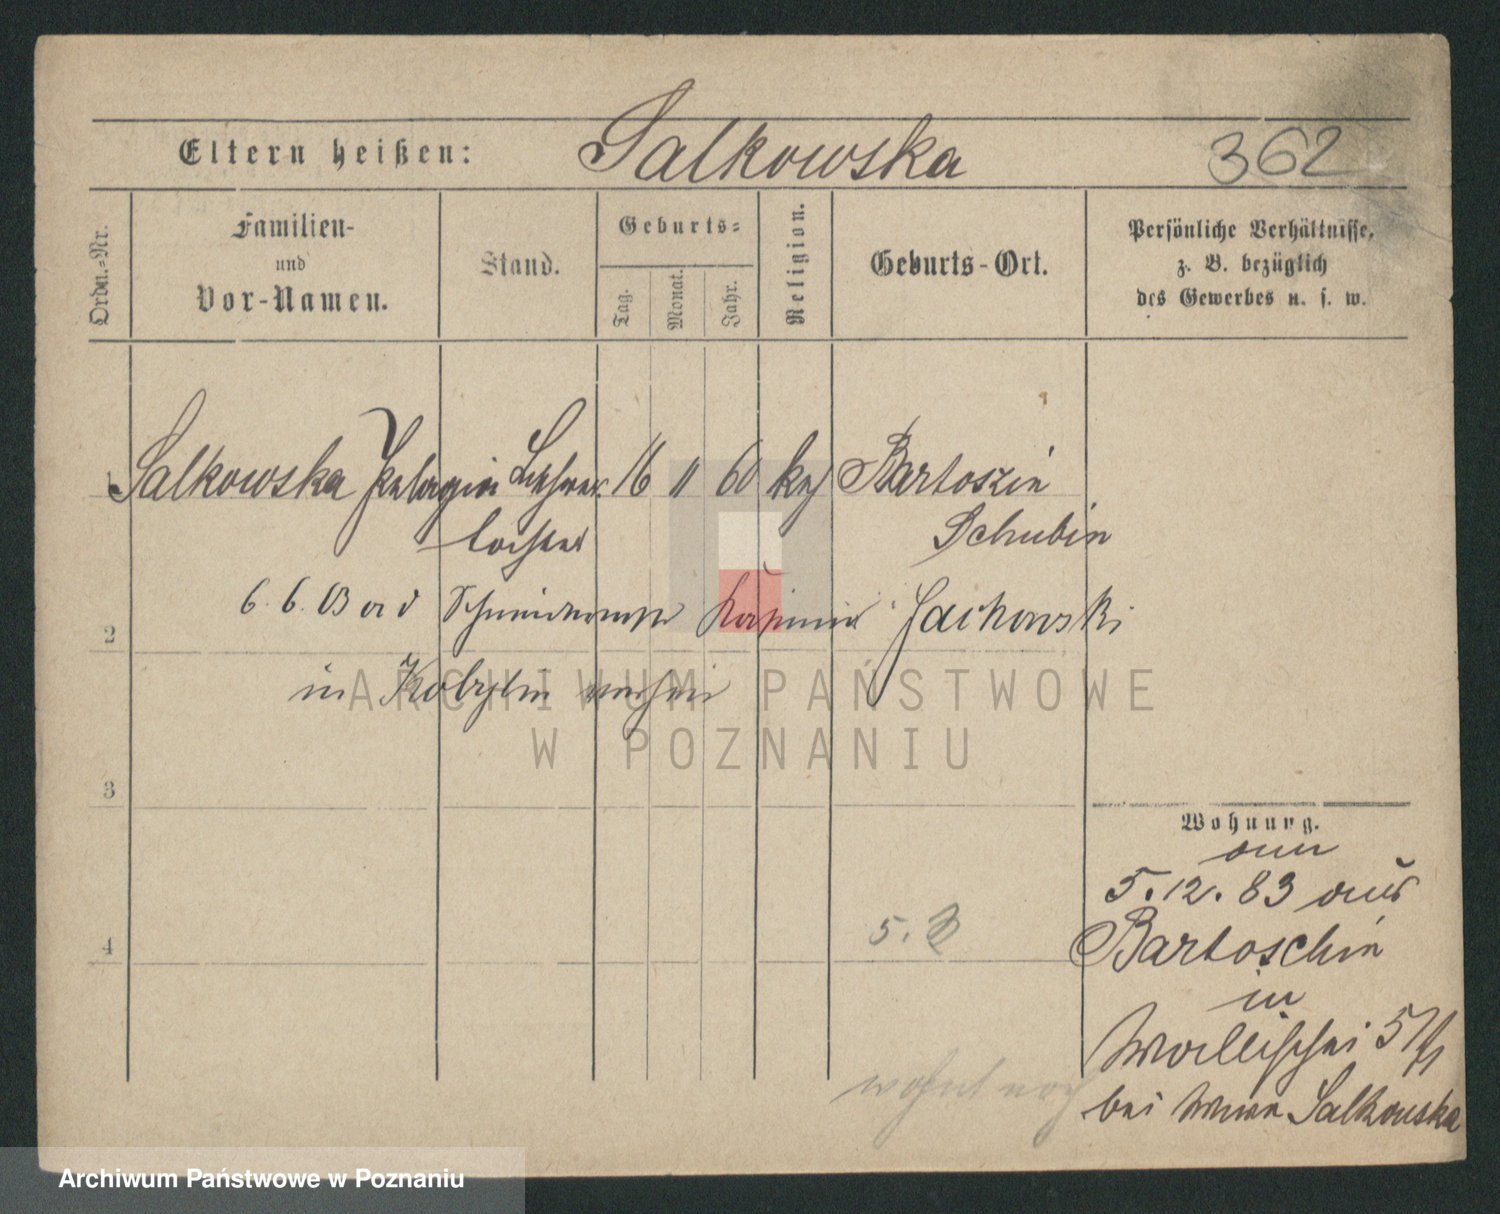 Eltern heißen: Salkowska 362
Ordn.-Nr.
Familien-
und
Vor-Namen.
Stand.
Geburts-
Tag.
Monat.
Jahr.
Religion.
Geburts-Ort.
Persönliche Verhältnisse,
z. B. bezüglich
des Gewerbes u. s. w.
1 Salkowska Pelagia Lehrer 16 11 60 kath Bartoszin
tochter Schubin
6. 6. 03 Kasimir Jackowski
2
in Kobylin
ARCHIWUM PAŃSTWOWE
W POZNANIU
3
Wohnung.
am
5. 12. 83 aus
4 5. Bartoschin
in
Wallischei 57/1
wohnt noch
bei Wwe Salkowska
Archiwum Państwowe w Poznaniu